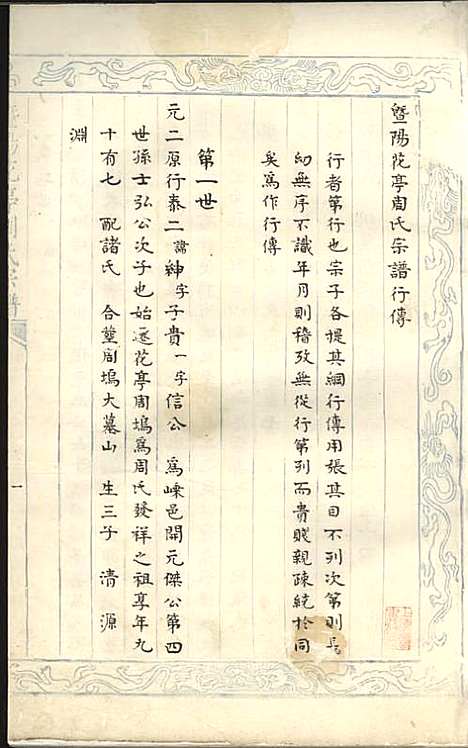 暨陽花亭周氏宗譜行傳
行者第行也宗子各提其綱行傳用張其目不列次第則長
幼無序不識年月則稽攷無從行第列而貴賤親疎統於同
矣爲作行傳
第一世
元二原行泰二諱紳字子貴一字信公 爲嵊邑開元傑公第四
世孫士弘公次子也始遷花亭周塢爲周氏發祥之祖享年九
十有七 配諸氏 合葬周塢大墓山 生三子 清 源
淵
一